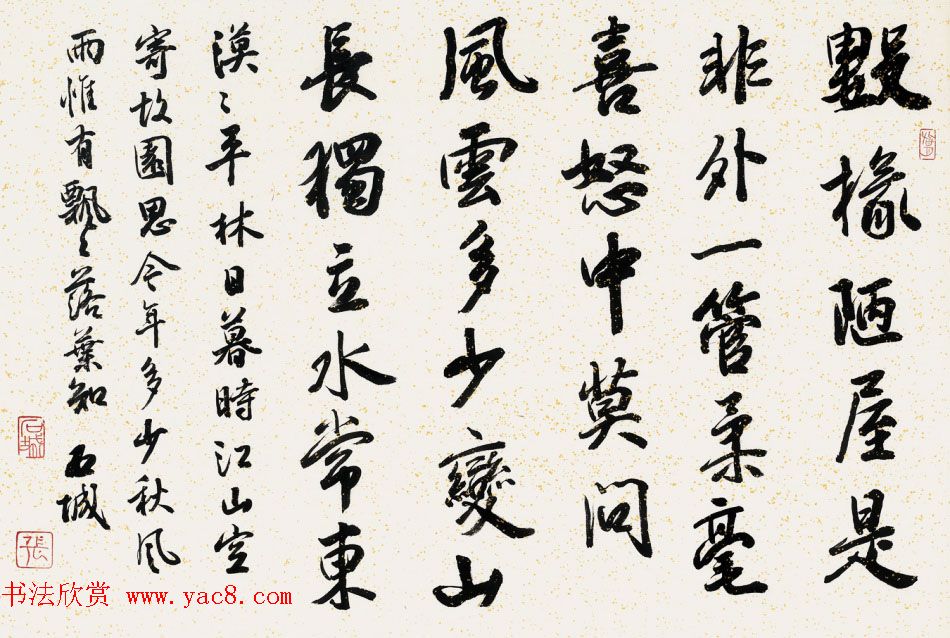 數椽陋屋是
非外一管柔毫
喜怒中莫问
風雲多少變山
長獨立水常東
漠〻平林日暮時江山空
寄故園思今年多少秋风
雨惟有飄〻落葉知 石城
石城
張
书法欣赏 www.yac8.com